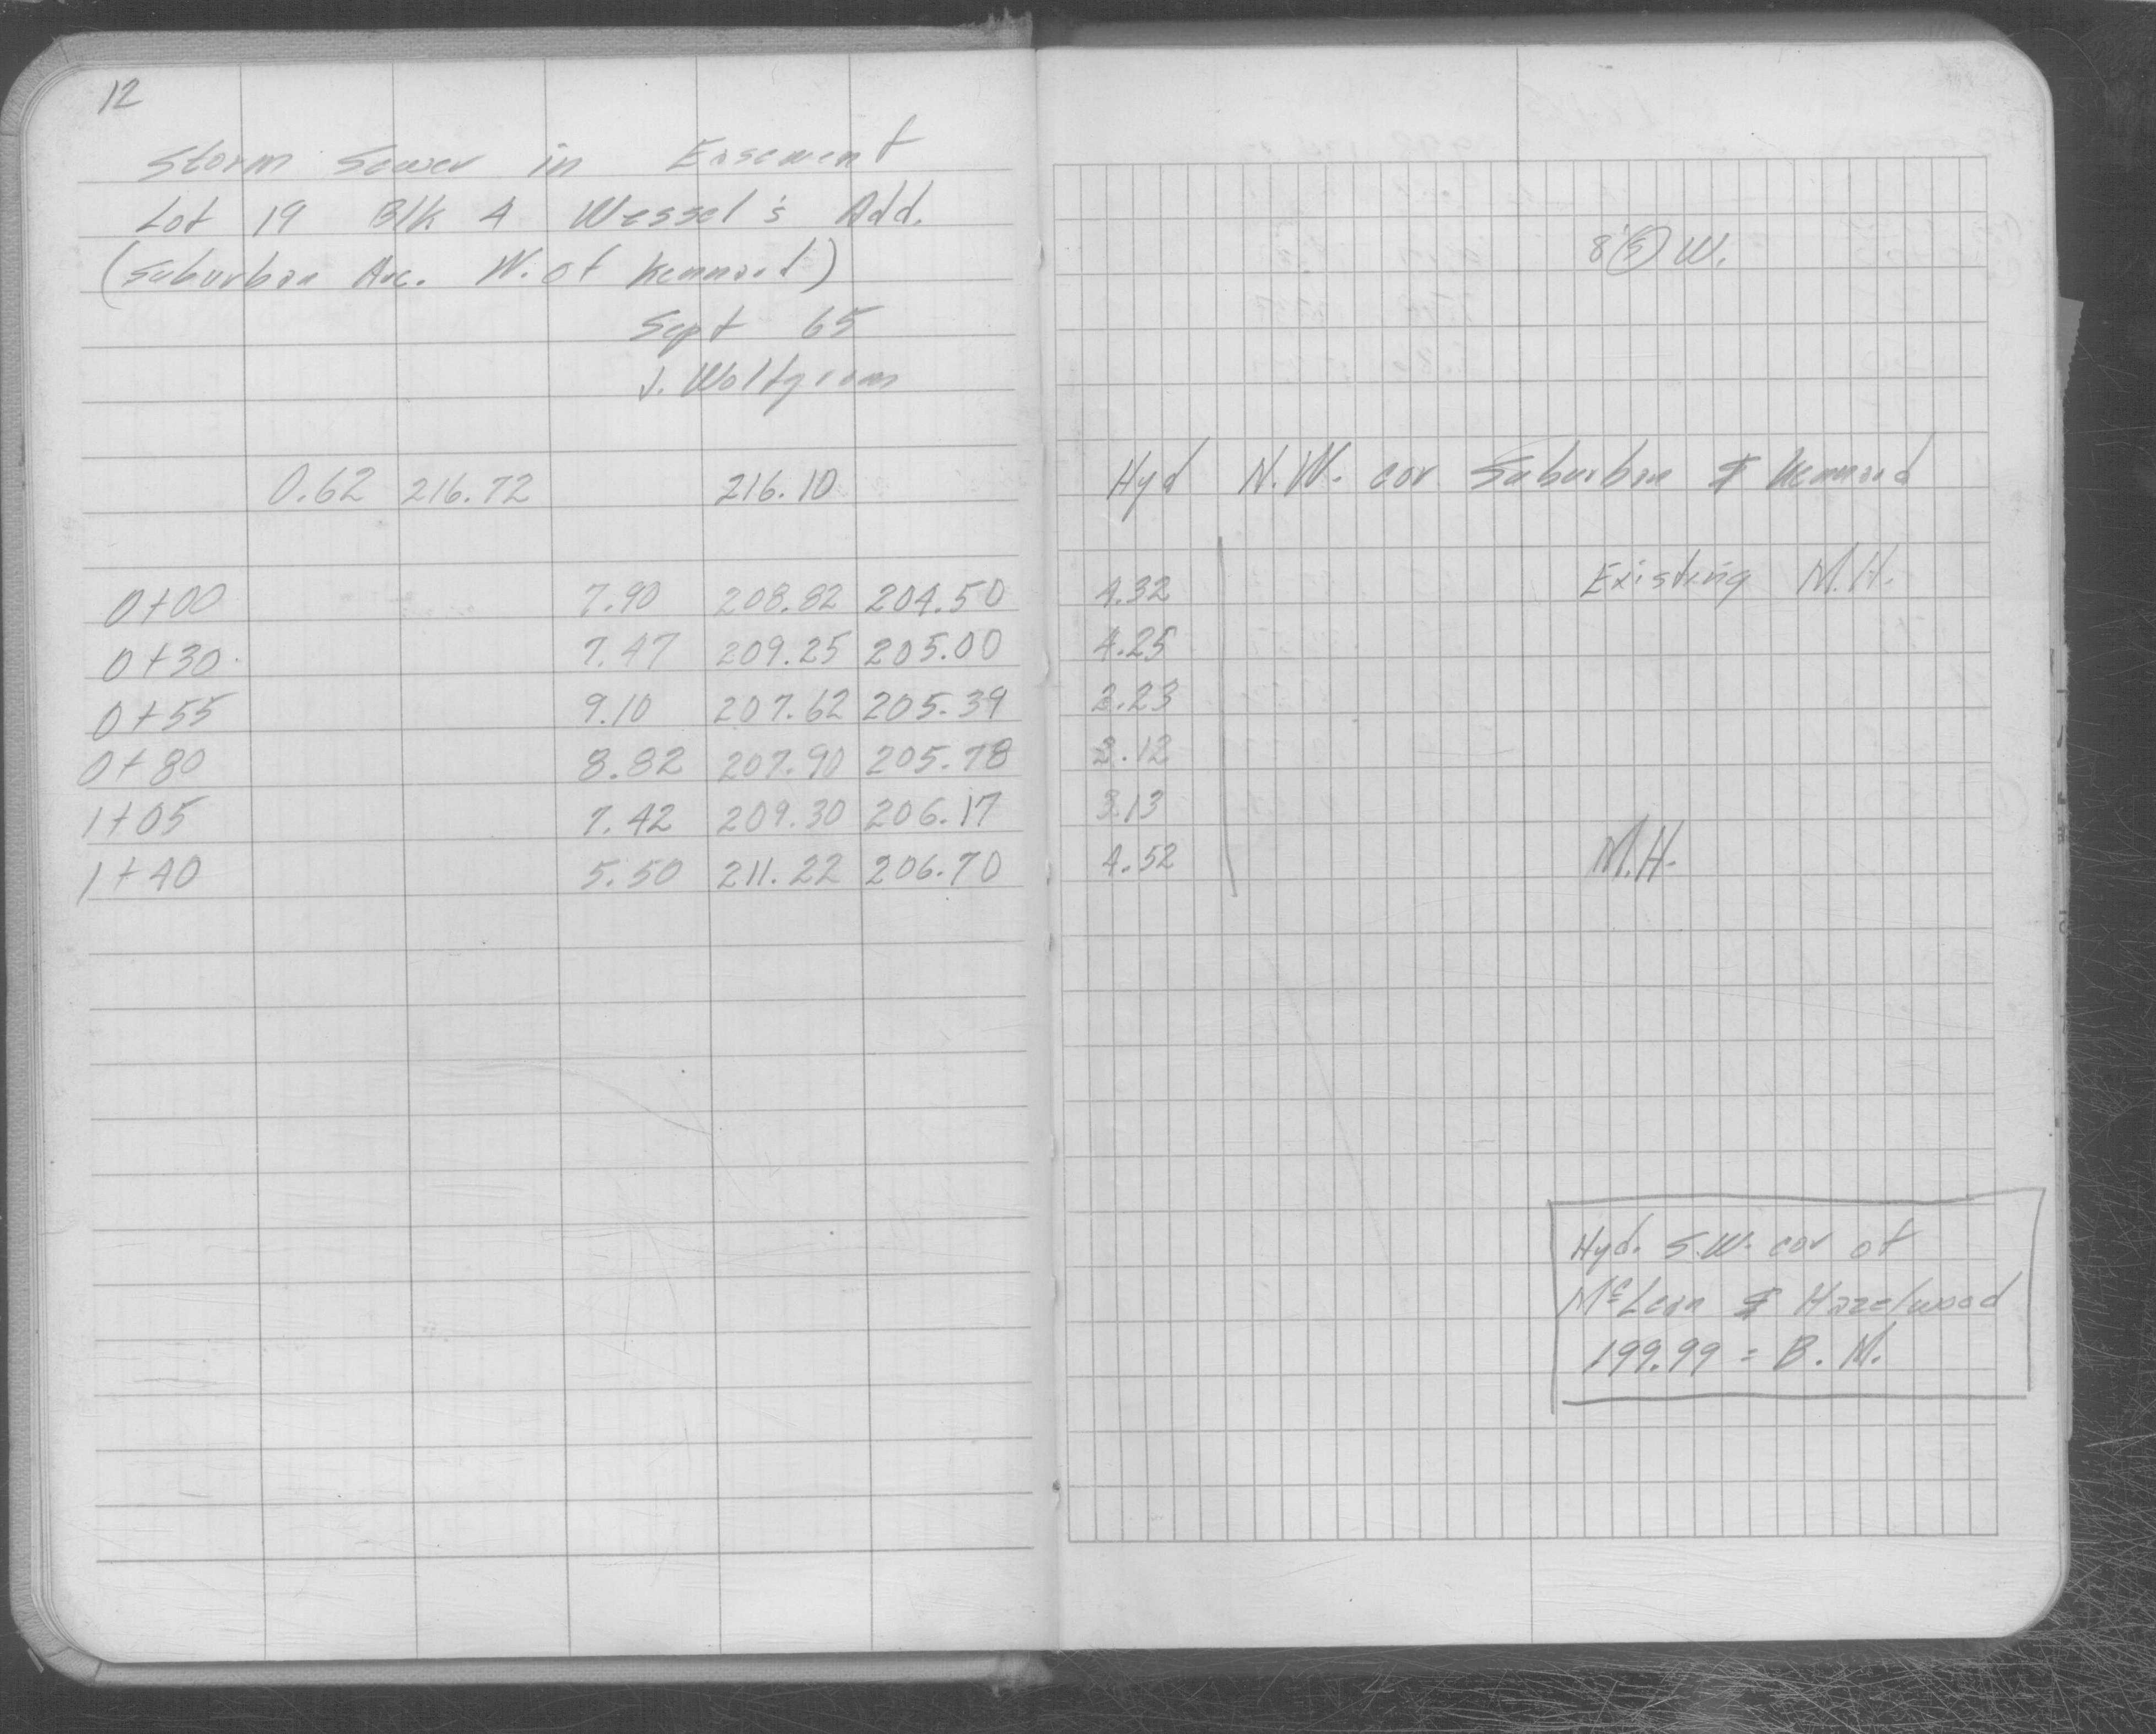 12
Storm Sewer in Easement
Lot 19 Blk 4 Wessel's Add.
(Suburban Ave. W. of Kennard)
Sept 65
J. Wolfgram
8' (S) W.
0.62 216.72 216.10 Hyd N.W. cor Suburban & Kennard
0+00 7.90 208.82 204.50 4.32 Existing M.H.
0+30 7.47 209.25 205.00 4.25
0+55 9.10 207.62 205.39 2.23
0+80 8.82 207.90 205.78 2.12
1+05 7.42 209.30 206.17 3.13
1+40 5.50 211.22 206.70 4.52 M.H.
Hyd. S.W. cor of
McLean & Hazelwood
199.99 = B.M.